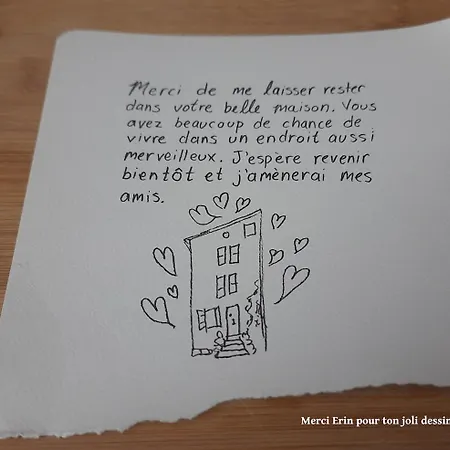 Merci de me laisser rester
dans votre belle maison. Vous
avez beaucoup de chance de
vivre dans un endroit aussi
merveilleux. J'espère revenir
bientôt et j'amènerai mes
amis.
Merci Erin pour ton joli dessin